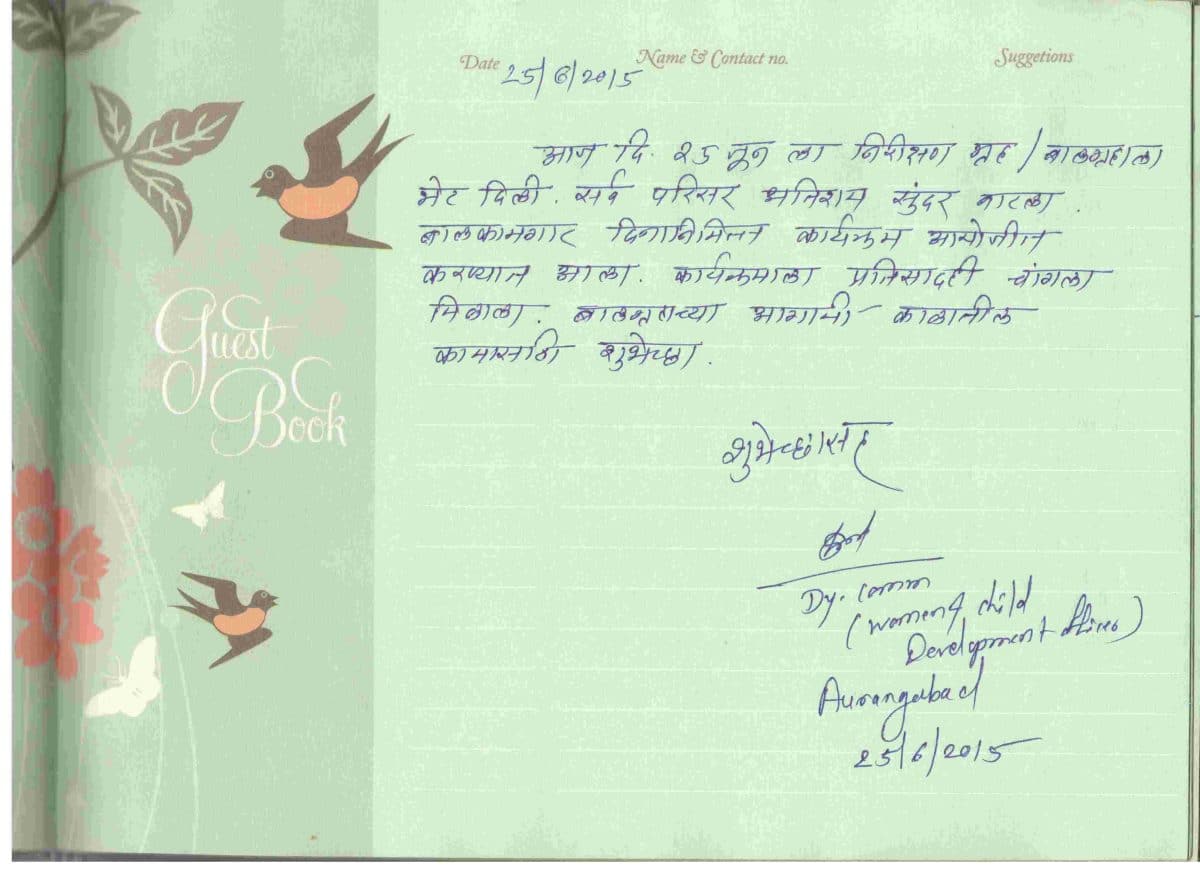 Date
Name & Contact no.
Suggetions
25/6/2015
आज दि. २५ जून ला निरीक्षण गृह / बालगृहाला
भेट दिली. सर्व परिसर अतिशय सुंदर वाटला.
बालकामगार दिनानिमित्त कार्यक्रम आयोजीत
करण्यात आला. कार्यक्रमाला प्रतिसादही चांगला
मिळाला. बालगृहाच्या आगामी काळातील
कामासाठी शुभेच्छा.
Guest
Book
शुभेच्छांसह
Dy. Comm
(Women & child
Development Office)
Aurangabad
25/6/2015